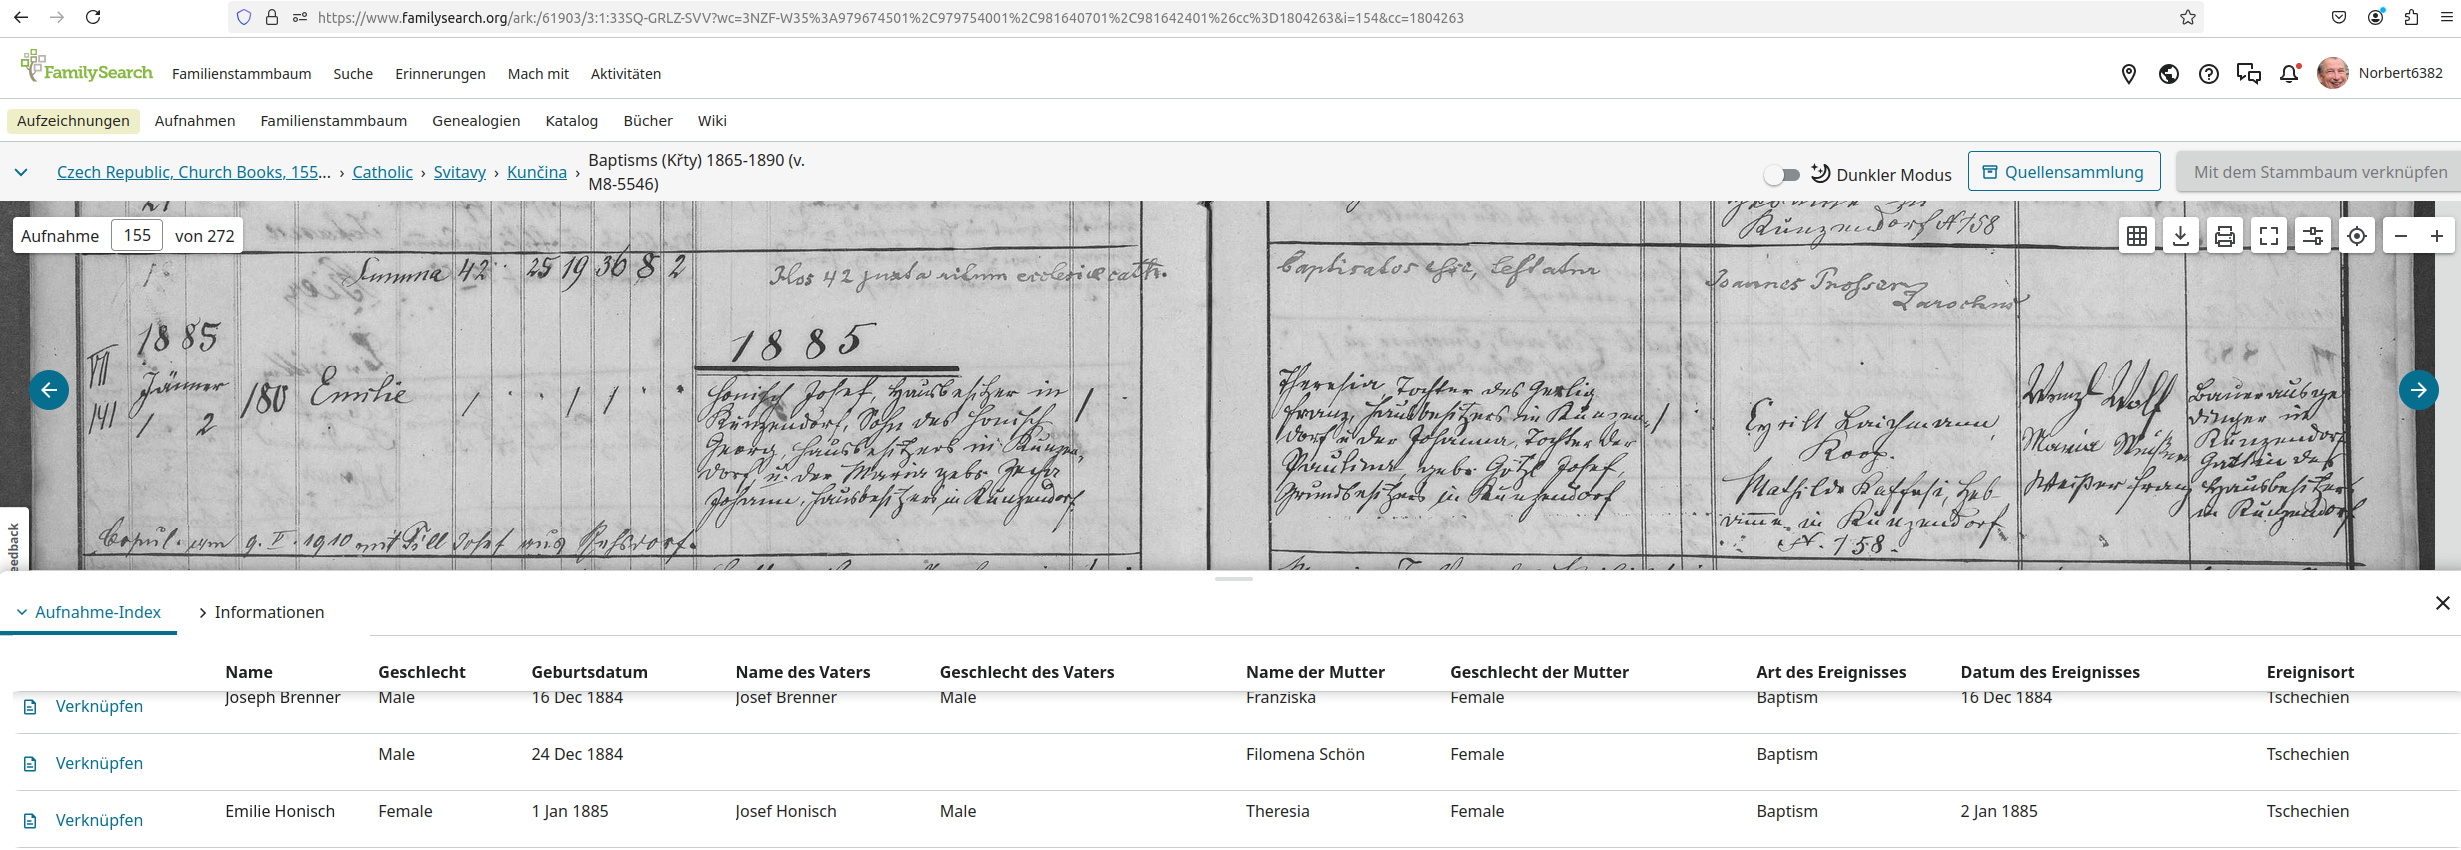 https://www.familysearch.org/ark:/61903/3:1:33SQ-GRLZ-SVV?wc=3NZF-W35%3A979674501%2C979754001%2C981640701%2C981642401%26cc%3D1804263&i=154&cc=1804263
FamilySearch
Familienstammbaum Suche Erinnerungen Mach mit Aktivitäten
Norbert6382
Aufzeichnungen Aufnahmen Familienstammbaum Genealogien Katalog Bücher Wiki
Czech Republic, Church Books, 155... › Catholic › Svitavy › Kunčina › Baptisms (Křty) 1865-1890 (v.
M8-5546)
Dunkler Modus
Quellensammlung
Mit dem Stammbaum verknüpfen
Aufnahme 155 von 272
Kunzendorf N 158
Summa 42 25 19 36 8 2
Hos 42 juxta ritum ecclesiae cath.
baptisatos esse, testatur
Joannes
Parochus
1885
1885
VII
Jänner
141
1 2
180 Emilie 1 1 1
Honisch Josef, Hausbesitzer in
Kunzendorf, Sohn des Honisch
Georg, Hausbesitzers in Kunzen-
dorf, u. der Maria gebr.
Johann, Hausbesitzers in Kunzendorf
1
Theresia, Tochter des Gerlig
Franz, Hausbesitzers in Kunzen-
dorf u der Johanna, Tochter der
Paulina, gebr. Götzl Josef,
Grundbesitzers in Kunzendorf
1
Cyrill
Koop.
Mathilde Kaffesi, Heb-
amme in Kunzendorf
N. 158.
Wenzl Wolf
Maria Weißer
Weißer Franz
Bauerausge
dinger in
Kunzendorf
Gattin des
Hausbesitzers
in Kunzendorf
Copul. am 9. II. 1910 mit Till Josef aus
Feedback
Aufnahme-Index Informationen
Name Geschlecht Geburtsdatum Name des Vaters Geschlecht des Vaters Name der Mutter Geschlecht der Mutter Art des Ereignisses Datum des Ereignisses Ereignisort
Verknüpfen Joseph Brenner Male 16 Dec 1884 Josef Brenner Male Franziska Female Baptism 16 Dec 1884 Tschechien
Verknüpfen Male 24 Dec 1884 Filomena Schön Female Baptism Tschechien
Verknüpfen Emilie Honisch Female 1 Jan 1885 Josef Honisch Male Theresia Female Baptism 2 Jan 1885 Tschechien